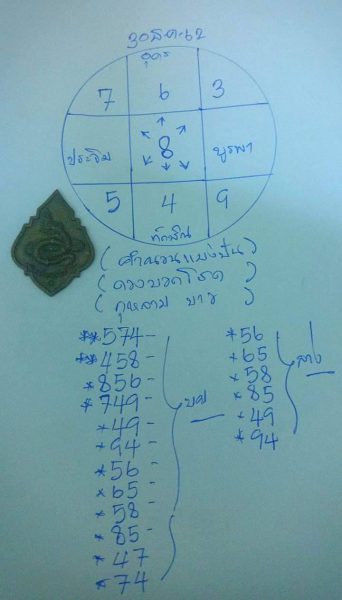 30 ธค. 62
อุดร
7 6 3
ประจิม 8 บูรพา
5 4 9
ทักษิณ
(คำนวนแบ่งปัน)
(ดวงบวกโชค)
(กุหลาบ ขาว)
**574-
**458-
*856-
*749-
*49-
*94-
*56-
*65-
*58-
*85-
*47
*74
บน
*56
*65
*58
*85
*49
*94
ล่าง